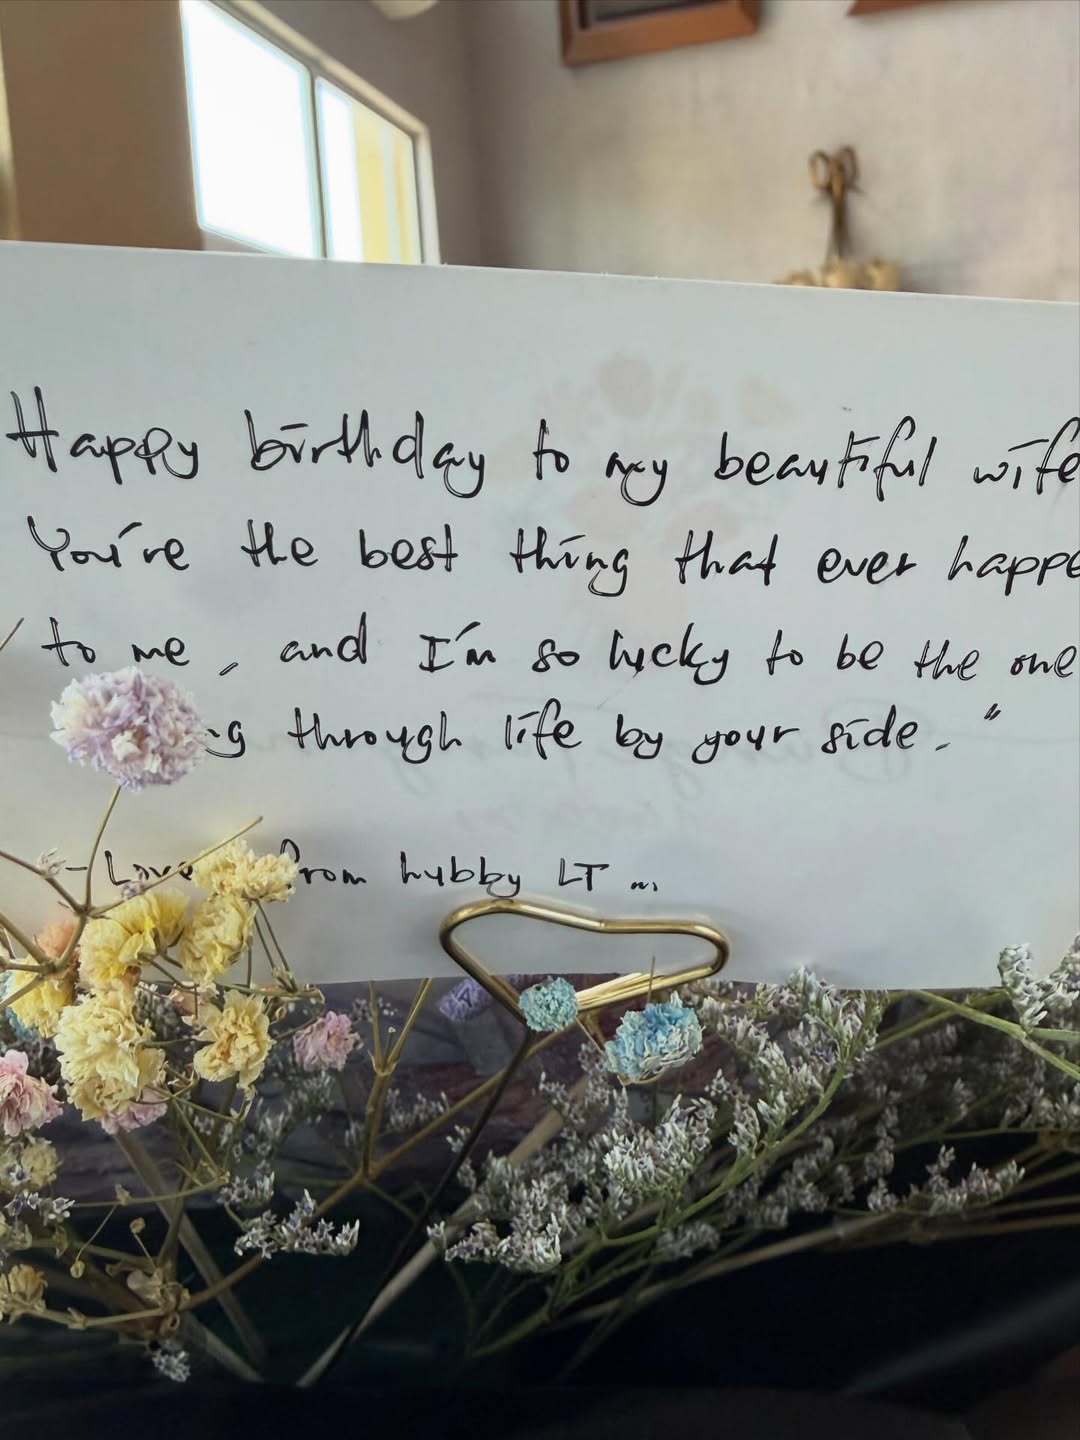 Happy birthday to my beautiful wife
You're the best thing that ever happe
to me, and I'm so lucky to be the one
g through life by your side."
- Love from hubby LT ...